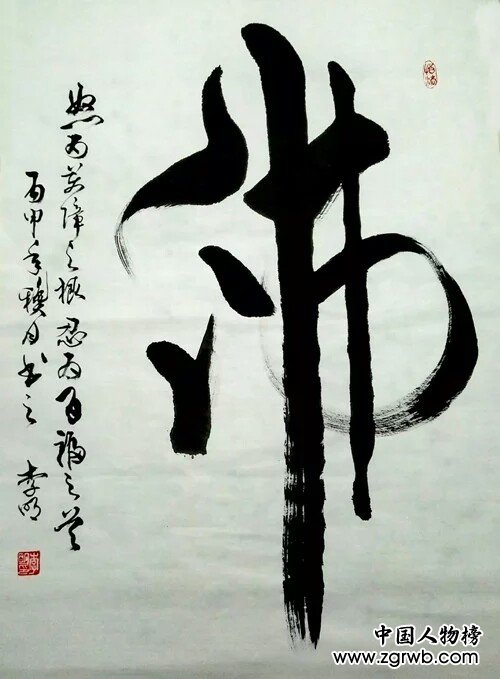 佛
怒为萬障之根忍为百福之首
丙申年臘月书之 李明
中国人物榜
www.zgrwb.com